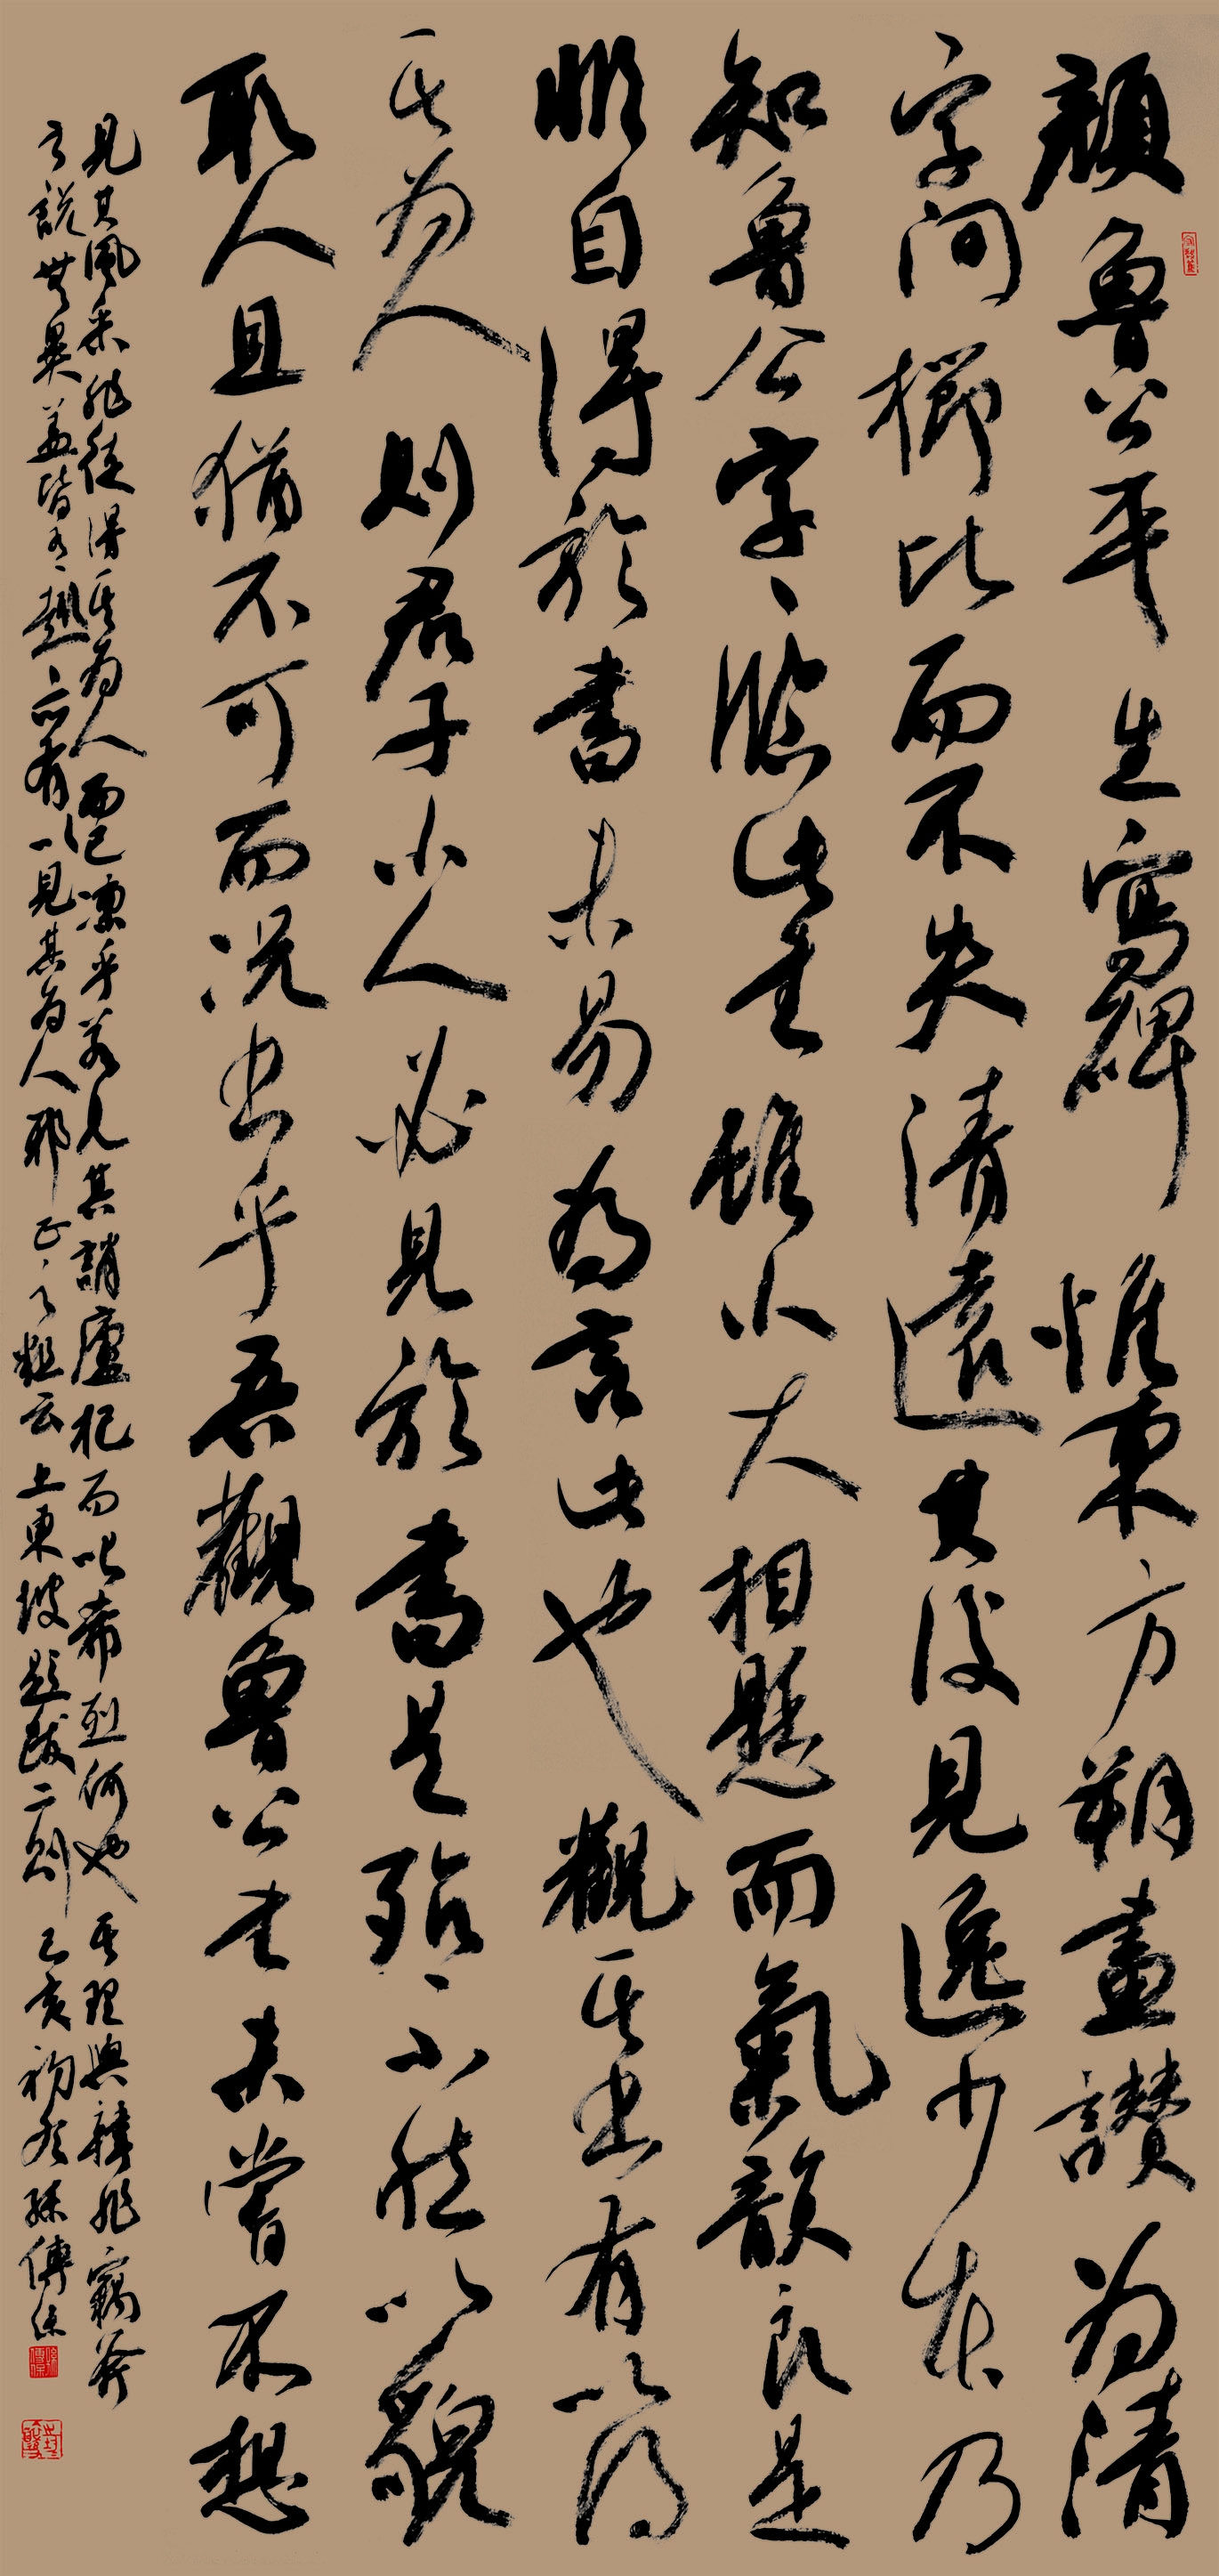 顏魯公平生寫碑惟東方朔畫讚為清
字間櫛比而不失清遠其後見逸少本乃
知魯公字字臨此書雖小大相懸而氣韻良是
非自得於書未易為言此也觀其書有以得
其為人則君子小人必見於書是殆不然以貌
取人且猶不可而況書乎吾觀魯公書未嘗不想
見其風采非徒得其為人而已凜乎若見其誚盧杞而叱希烈何也其理與韓非竊斧
之說無異蓋皆有趣亦有以見其為人邪正之粗云 上東坡題跋二則 己亥初冬孫傳